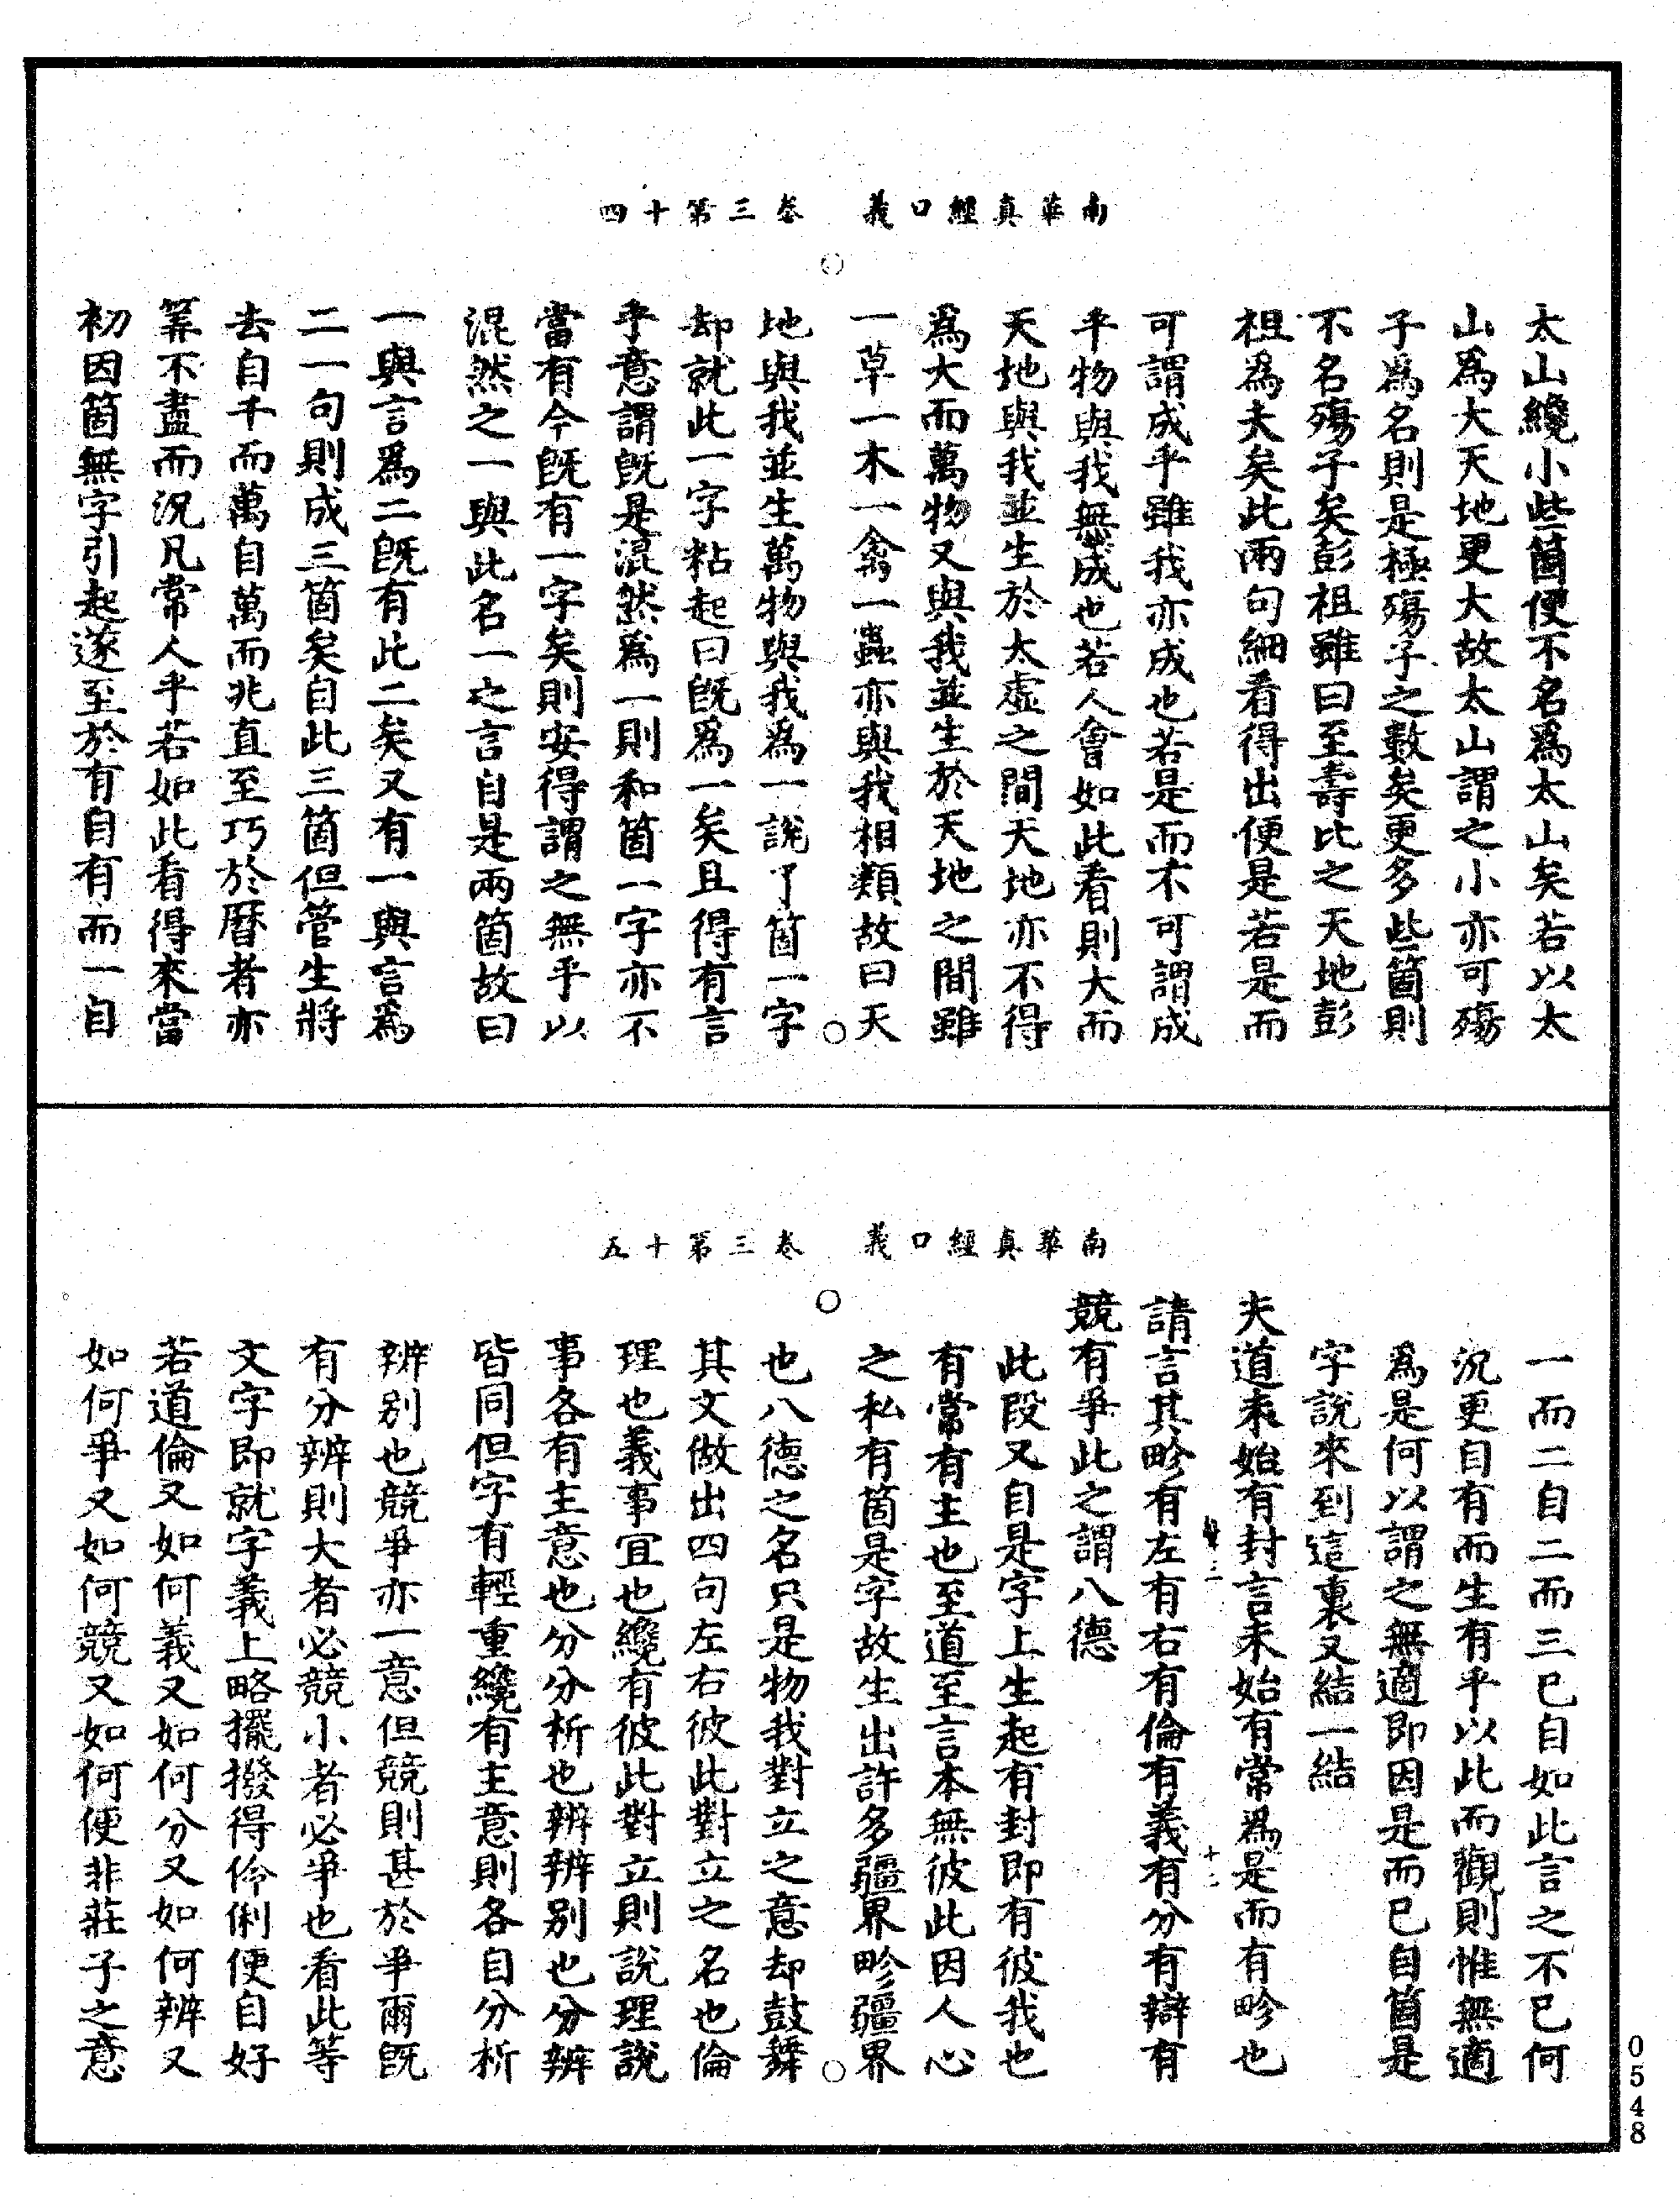 南華真經口義 卷三第十四
太山纔小些箇便不名為太山矣若以太
山為大天地更大故太山謂之小亦可殤
子為名則是極殤子之數矣更多些箇則
不名殤子矣彭祖雖曰至壽比之天地彭
祖為夭矣此兩句細看得出便是若是而
可謂成乎雖我亦成也若是而不可謂成
乎物與我無成也若人會如此看則大而
天地與我並生於太虛之間天地亦不得
為大而萬物又與我並生於天地之間雖
一草一木一禽一蟲亦與我相類故曰天
地與我並生萬物與我為一說了箇一字
却就此一字粘起曰既為一矣且得有言
乎意謂既是混然為一則和箇一字亦不
當有今既有一字矣則安得謂之無乎以
混然之一與此名一之言自是兩箇故曰
一與言為二既有此二矣又有一與言為
二一句則成三箇矣自此三箇但管生將
去自千而萬自萬而兆直至巧於曆者亦
筭不盡而況凡常人乎若如此看得來當
初因箇無字引起遂至於有自有而一自
南華真經口義 卷三第十五
一而二自二而三已自如此言之不已何
況更自有而生有乎以此而觀則惟無適
為是何以謂之無適即因是而已自箇是
字說來到這裏又結一結
夫道未始有封言未始有常為是而有畛也
請言其畛有左有右有倫有義有分有辯有
競有爭此之謂八德
此段又自是字上生起有封即有彼我也
有常有主也至道至言本無彼此因人心
之私有箇是字故生出許多疆界畛疆界
也八德之名只是物我對立之意却鼓舞
其文做出四句左右彼此對立之名也倫
理也義事宜也纔有彼此對立則說理說
事各有主意也分分析也辨辨別也分辨
皆同但字有輕重纔有主意則各自分析
辨別也競爭亦一意但競則甚於爭爾既
有分辨則大者必競小者必爭也看此等
文字即就字義上略擺撥得伶俐便自好
若道倫又如何義又如何分又如何辨又
如何爭又如何競又如何便非莊子之意
0548